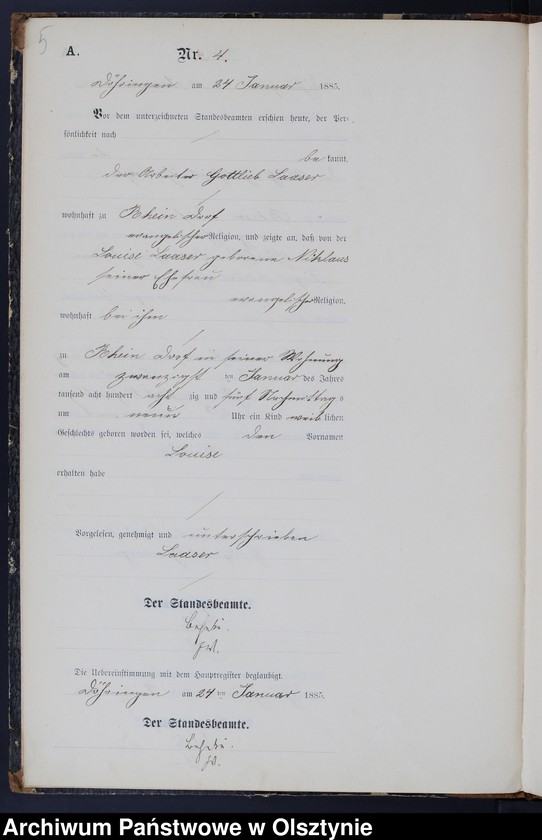 5
A. Nr. 4.
Döhringen am 24 Januar 1885.
Vor dem unterzeichneten Standesbeamten erschien heute, der Per-
sönlichkeit nach
be kannt,
der Arbeiter Gottlieb Laaser
wohnhaft zu Rhein Dorf
evangelischer Religion, und zeigte an, daß von der
Louise Laaser geborene Niklaus
seiner Ehefrau
evangelischer Religion,
wohnhaft bei ihm
zu Rhein Dorf in seiner Wohnung
am zwanzigst ten Januar des Jahres
tausend acht hundert acht zig und fünf Nachmittag s
um neun Uhr ein Kind weib lichen
Geschlechts geboren worden sei, welches den Vornamen
Louise
erhalten habe
Vorgelesen, genehmigt und unterschrieben
Laaser
Der Standesbeamte.
Die Uebereinstimmung mit dem Hauptregister beglaubigt.
Döhringen am 24 ten Januar 1885.
Der Standesbeamte.
Archiwum Państwowe w Olsztynie